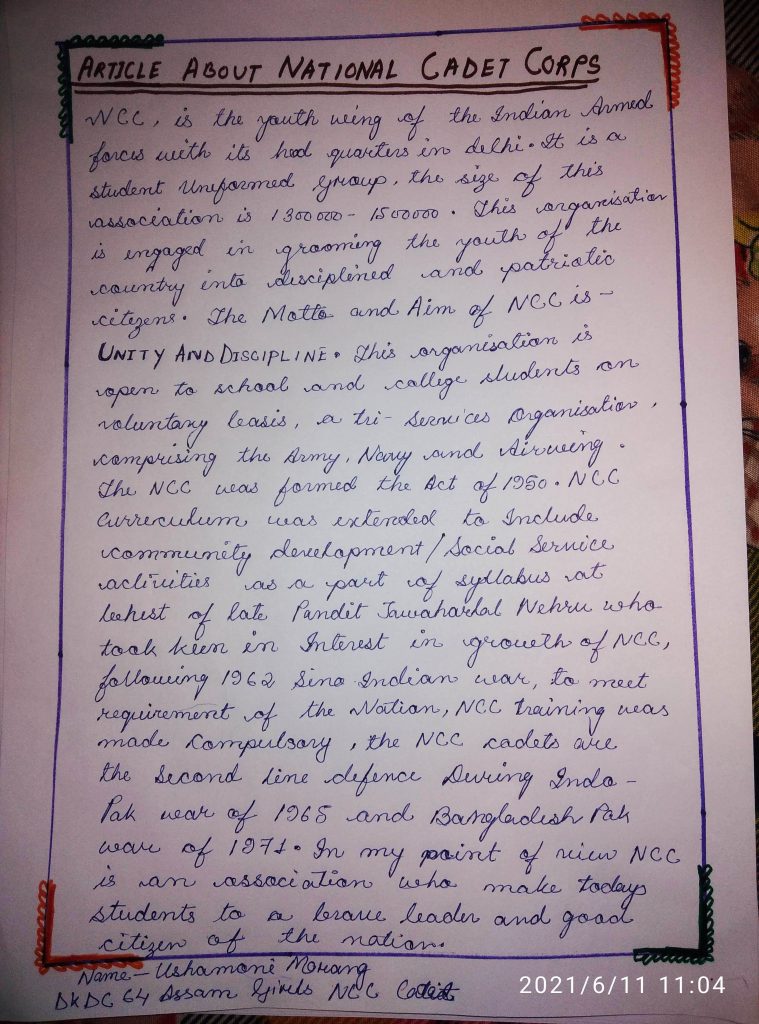 ARTICLE ABOUT NATIONAL CADET CORPS
NCC, is the youth wing of the Indian Armed
forces with its hed quarters in delhi. It is a
student Uneformed group, the size of this
association is 1300000-1500000. This organisation
is engaged in grooming the youth of the
country into disciplined and patriotic
citezens. The Motto and Aim of NCC is-
UNITY AND DISCIPLINE. This organisation is
open to school and college students on
voluntary basis, a tri- Services Organisation,
comprising the Army, Navy and Airwing.
The NCC was formed the Act of 1950. NCC
Curreculum was extended to Include
community development/Social Service
activities as a part of syllabus at
behest of late Pandit Jawaharlal Nehru who
took keen in Interest in growth of NCC,
following 1962 Sino Indian war, to meet
requirement of the Nation, NCC training was
made Compulsory, the NCC cadets are
the Second line defence During Indo-
Pak war of 1965 and Bangladesh Pak
war of 1971. In my point of view NCC
is an association who make todays
students to a brave leader and good
citizen of the nation.
Name- Ushamoni Morang
DKDC 64 Assam Girls NCC
2021/6/11 11:04